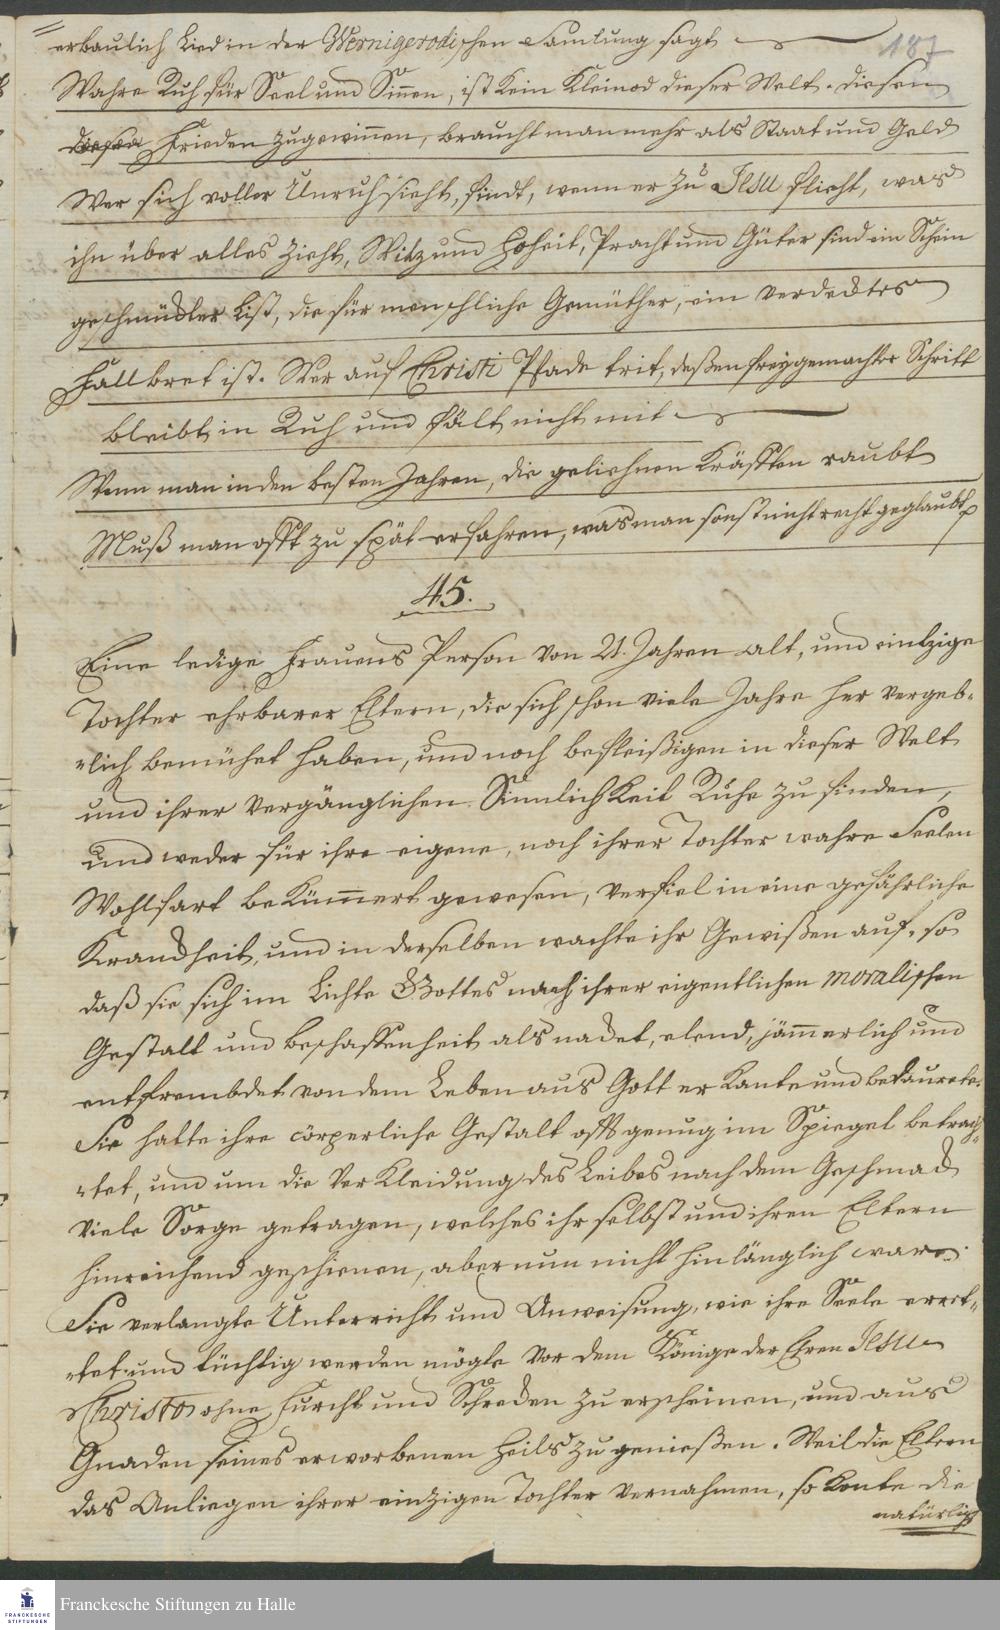 187
erbaulich Lied in der Wernigerodischen Samlung sagt
Wahre Ruh für Seel und Sinnen, ist kein Kleinod dieser Welt. diesen
diesen Frieden zugewinnen, braucht man mehr als Staat und Geld
Wer sich voller Unruh sieht, findt, wenn er zu Jesu flieht, was
ihn über alles zieht, Witz und Hoheit, Pracht und Güter sind im Schein
geschmückter List, die für menschliche Gemüther, ein verdecktes
Fallbret ist. Wer auf Christi Pfade trit, deßen freygemachter Schritt
bleibt in Ruh und fält nicht mit
Wenn man in den besten Jahren, die geliehnen Kräfften raubt
Muß man offt zu spät erfahren, was man sonst nicht recht geglaubt
45.
Eine ledige Frauens Person von 21. Jahren alt, und eintzige
Tochter ehrbarer Eltern, die sich schon viele Jahre her vergeb-
-lich bemühet haben, und noch befleißigen in dieser Welt
und ihrer vergänglichen Sinnlichkeit Ruhe zu finden,
und weder für ihre eigene, noch ihrer Tochter wahre Seelen
Wohlfart bekümmert gewesen, verfiel in eine gefährliche
Kranckheit, und in derselben wachte ihr Gewißen auf, so
daß sie sich im Lichte Gottes nach ihrer eigentlichen moralischen
Gestalt und Beschaffenheit als nacket, elend, jämmerlich und
entfrembdet von dem Leben aus Gott erkante und bedaurete.
Sie hatte ihre cörperliche Gestalt offt genug im Spiegel betrach-
-tet, und um die Verkleidung des Leibes nach dem Geschmack
viele Sorge getragen, welches ihr selbst und ihren Eltern
hinreichend geschienen, aber nun nicht hinlänglich ware.
Sie verlangte Unterricht und Anweisung, wie ihre Seele erret-
-tet und tüchtig werden mögte vor dem Könige der Ehren Jesu
Christo ohne Furcht und Schrecken zu erscheinen, und aus
Gnaden seines erworbenen Heils zu genießen. Weil die Eltern
das Anliegen ihrer einzigen Tochter vernahmen, so konte die
natürlich
FRANCKESCHE
STIFTUNGEN
Franckesche Stiftungen zu Halle